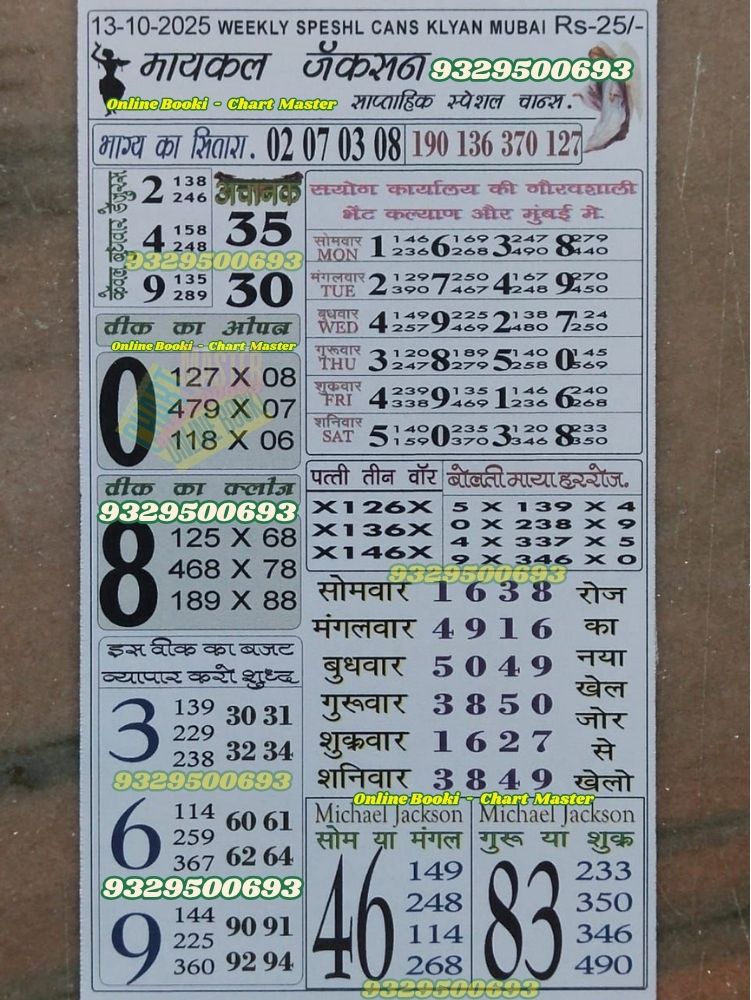 13-10-2025 WEEKLY SPESHL CANS KLYAN MUBAI Rs-25/-
मायकल जॅकसन 9329500693
Online Booki - Chart Master साप्ताहिक स्पेशल चान्स.
भाग्य का सितारा. 02 07 03 08 190 136 370 127
2 138 246
4 158 248
9 135 289
अचानक
35
9329500693
30
सयोग कार्यालय की गौरवशाली
भेंट कल्याण और मुंबई मे.
सोमवार MON 1 146 236 6 169 268 3 247 490 8 279 440
मंगलवार TUE 2 129 390 7 250 467 4 167 248 9 270 450
बुधवार WED 4 149 257 9 225 469 2 138 480 7 124 250
गुरूवार THU 3 120 247 8 189 279 5 140 258 0 145 569
शुक्रवार FRI 4 239 338 9 135 469 1 146 236 6 240 268
शनिवार SAT 5 140 159 0 235 370 3 120 346 8 233 350
वीक का ओपन
Online Booki - Chart Master
0
127 X 08
479 X 07
118 X 06
वीक का क्लोज
9329500693
8
125 X 68
468 X 78
189 X 88
पत्ती तीन वॉर
X126X
X136X
X146X
बोलती माया हररोज.
5 X 139 X 4
0 X 238 X 9
4 X 337 X 5
9 X 346 X 0
9329500693
सोमवार 1 6 3 8
मंगलवार 4 9 1 6
बुधवार 5 0 4 9
गुरूवार 3 8 5 0
शुक्रवार 1 6 2 7
शनिवार 3 8 4 9
रोज
का
नया
खेल
जोर
से
खेलो
इस वीक का बजट
व्यापार करो शुध्द
3
139 30 31
229
238 32 34
9329500693
6
114 60 61
259
367 62 64
9329500693
9
144 90 91
225
360 92 94
Online Booki - Chart Master
Michael Jackson
सोम या मंगल
46
149
248
114
268
Michael Jackson
गुरू या शुक्र
83
233
350
346
490
9329500693